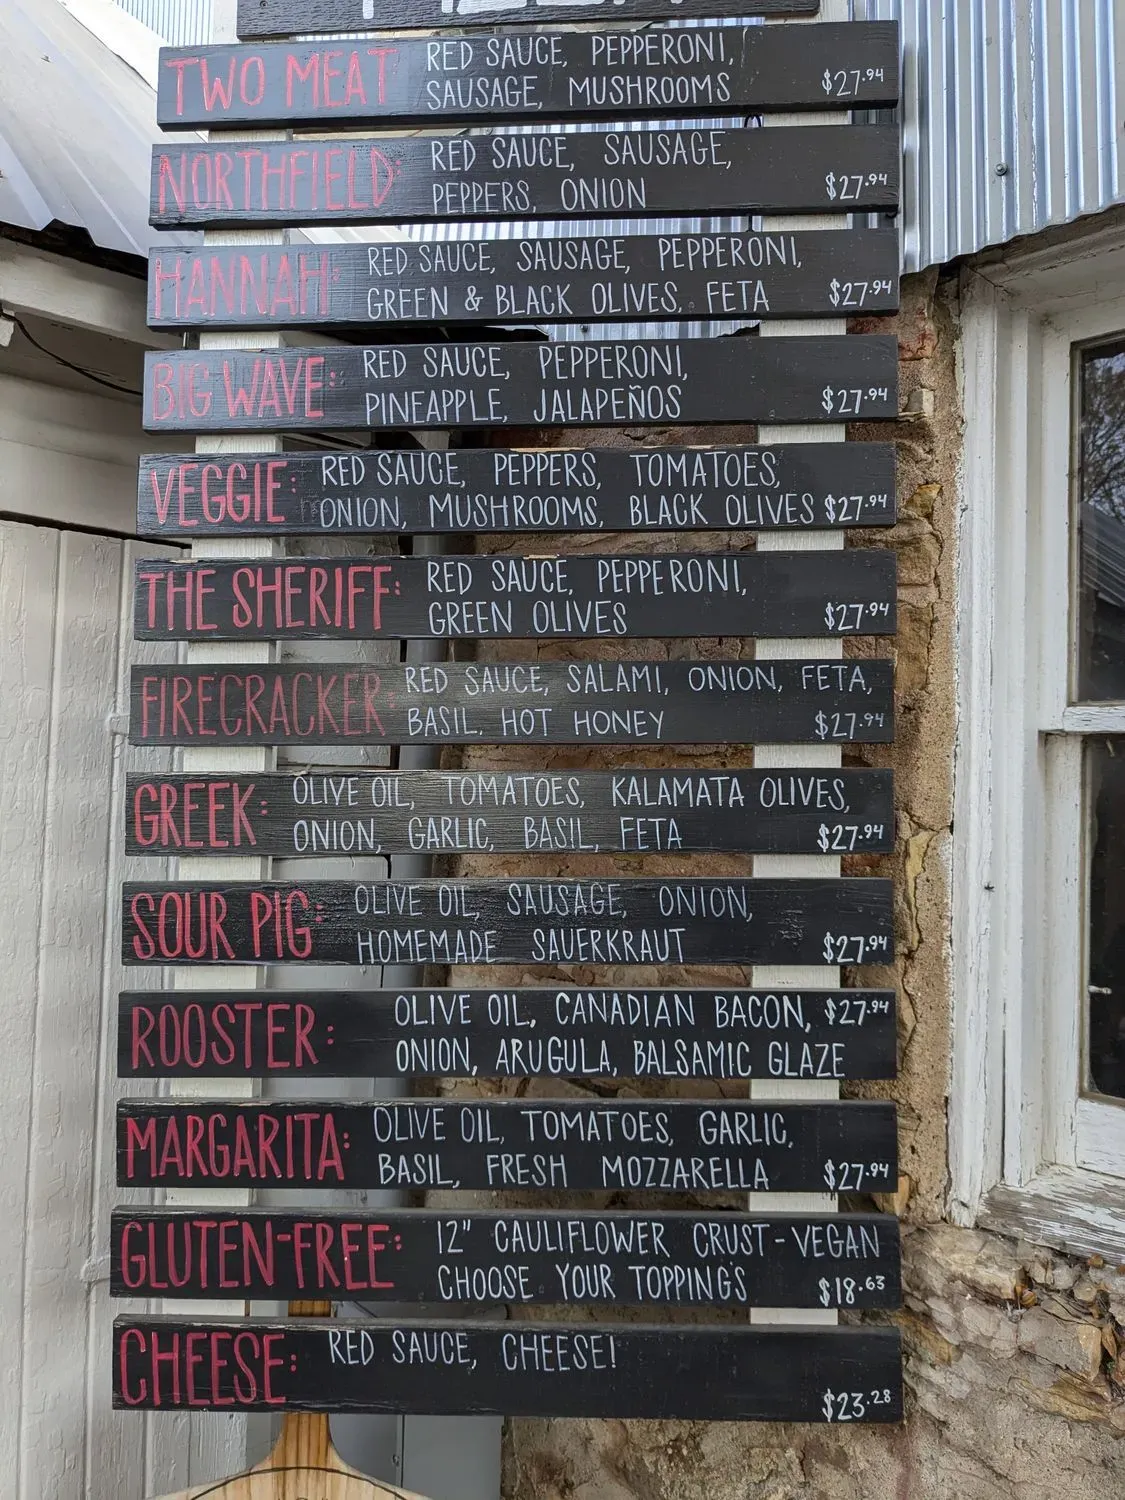 TWO MEAT RED SAUCE, PEPPERONI,
SAUSAGE, MUSHROOMS $27.94
NORTHFIELD: RED SAUCE, SAUSAGE,
PEPPERS, ONION $27.94
HANNAH: RED SAUCE, SAUSAGE, PEPPERONI,
GREEN & BLACK OLIVES, FETA $27.94
BIG WAVE: RED SAUCE, PEPPERONI,
PINEAPPLE, JALAPEÑOS $27.94
VEGGIE: RED SAUCE, PEPPERS, TOMATOES,
ONION, MUSHROOMS, BLACK OLIVES $27.94
THE SHERIFF: RED SAUCE, PEPPERONI,
GREEN OLIVES $27.94
FIRECRACKER: RED SAUCE, SALAMI, ONION, FETA,
BASIL, HOT HONEY $27.94
GREEK: OLIVE OIL, TOMATOES, KALAMATA OLIVES,
ONION, GARLIC, BASIL, FETA $27.94
SOUR PIG: OLIVE OIL, SAUSAGE, ONION,
HOMEMADE SAUERKRAUT $27.94
ROOSTER: OLIVE OIL, CANADIAN BACON, $27.94
ONION, ARUGULA, BALSAMIC GLAZE
MARGARITA: OLIVE OIL, TOMATOES, GARLIC,
BASIL, FRESH MOZZARELLA $27.94
GLUTEN-FREE: 12" CAULIFLOWER CRUST-VEGAN
CHOOSE YOUR TOPPINGS $18.63
CHEESE: RED SAUCE, CHEESE!
$23.28